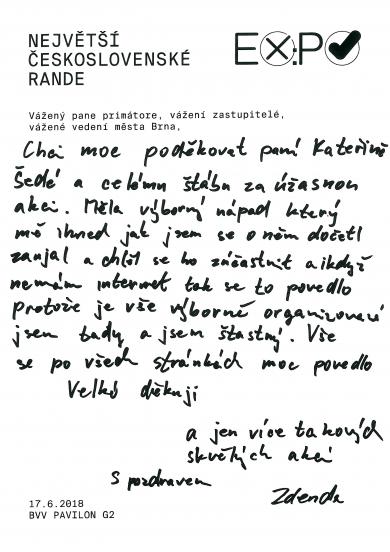 NEJVĚTŠÍ
ČESKOSLOVENSKÉ
RANDE
EX:PO
Vážený pane primátore, vážení zastupitelé,
vážené vedení města Brna,
Chci moc poděkovat paní Kateřině
Šedé a celému štábu za úžasnou
akci. Měla výborný nápad který
mě ihned jak jsem se o něm dočetl
zaujal a chtěl se ho zúčastnit a i když
nemám internet tak se to povedlo
protože je vše výborně organizovaci
jsem tady a jsem šťastný. Vše
se po všech stránkách moc povedlo
Velké děkuji
a jen více takových
skvělých akcí
S pozdravem
Zdenda
17.6.2018
BVV PAVILON G2